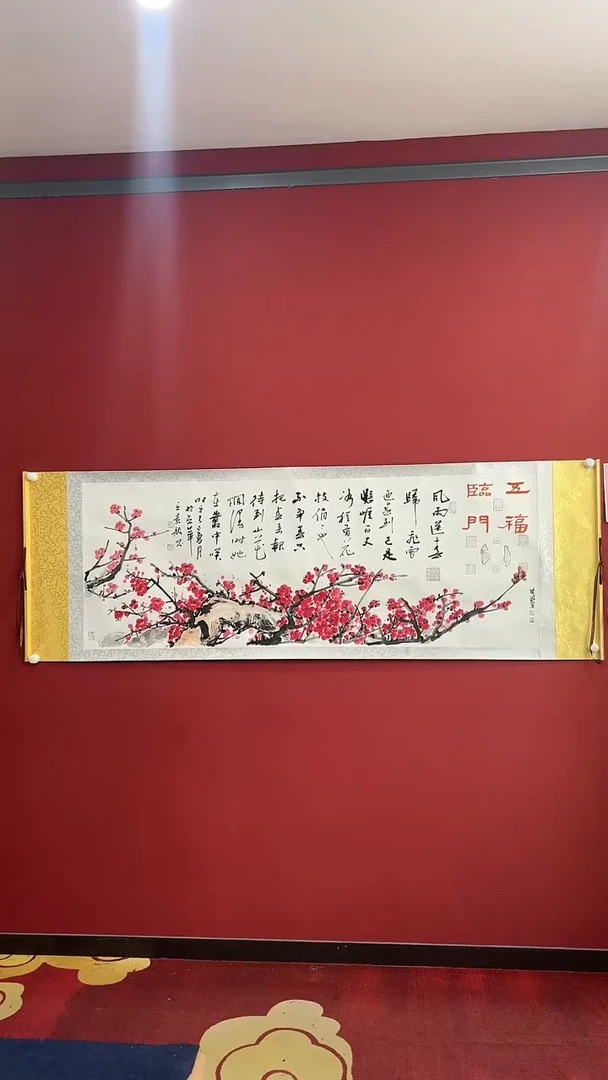 五福
臨門
風雨送春
歸飛雪
迎春到已是
懸崖百丈
冰猶有花
枝俏俏也
不争春只
把春來報
待到山花
爛漫時她
在叢中咲